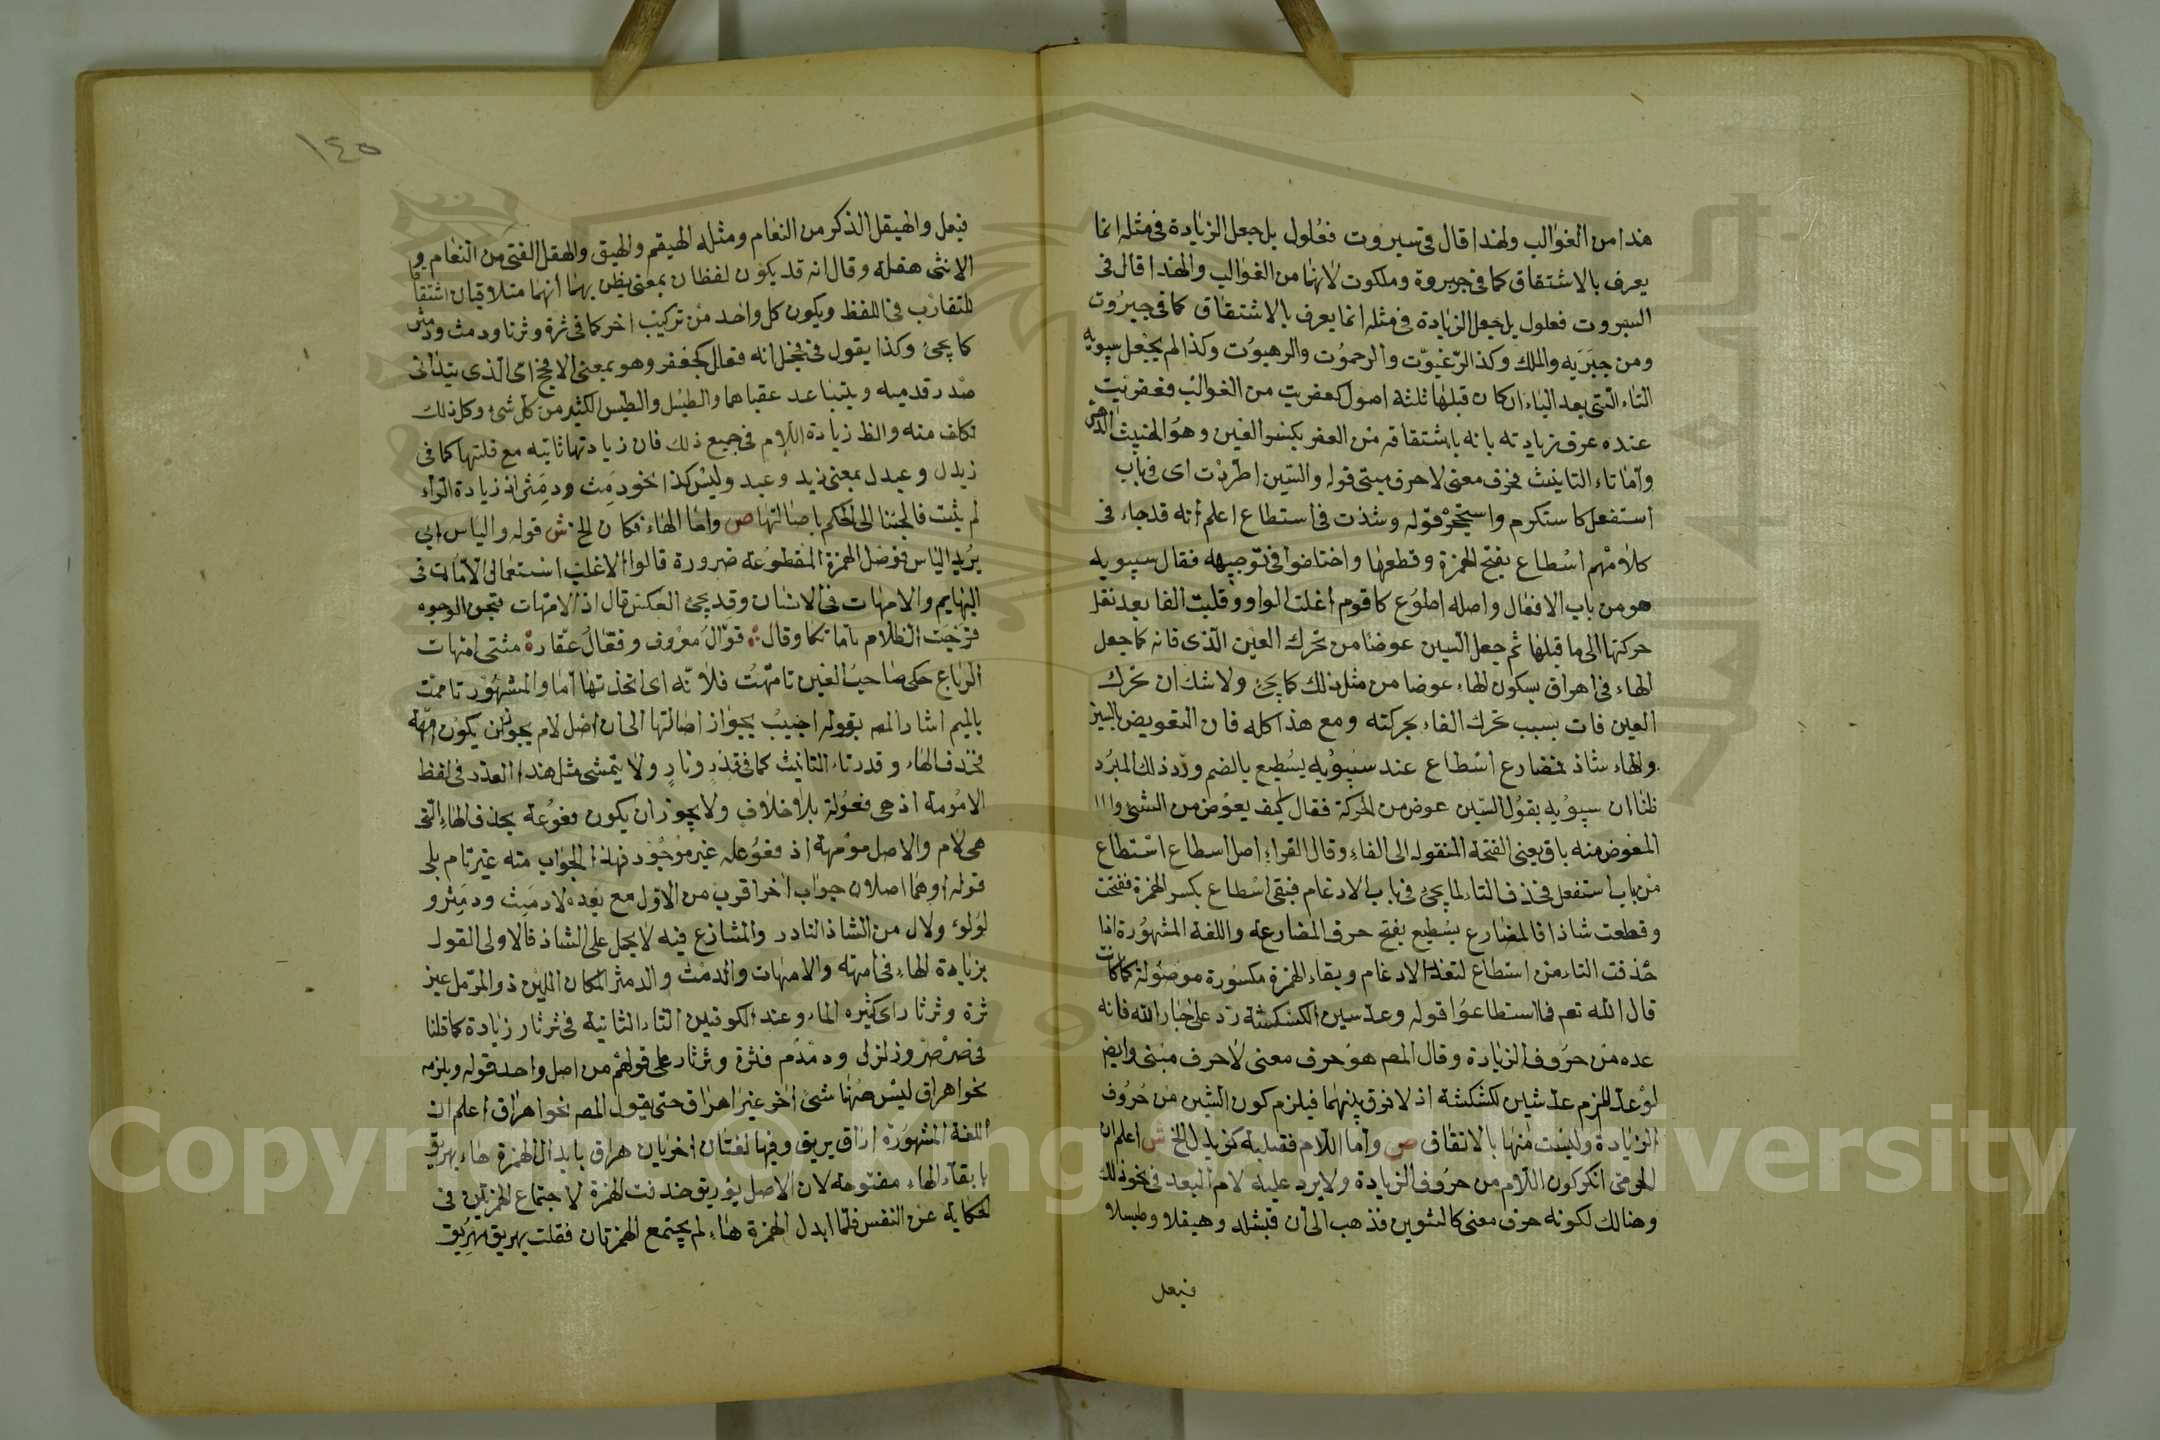 هذا من الغوالب ولهذا قال فى سبروت فعلول بل جعل الزيادة فى مثله انما
يعرف بالاشتقاق كما فى جبروة وملكوت لانهما من الغوالب ولهذا قال فى
السبروت فعلول بل جعل الزيادة فى مثله انما يعرف بالاشتقاق كما فى جبروت
ومن جبريه والملك وكذا الرغبوت والرحموت والرهبوت وكذا لم يجعل سيبويه
التاء التى بعد الياء ان كان قبلها ثلثة اصول كعفريت من الغوالب فعفريت
عنده عرف زيادته بانه باشتقاقه من العفر بكسر العين وهو الخبيث الداهى
واما تاء التانيث فحرف معنى لا حرف مبنى قوله والسين اطردت اى فى باب
استفعل كاستكرم واستحجر قوله وشذت فى اسطاع اعلم انه قد جاء فى
كلامهم اسطاع بفتح الهمزة وقطعها واختلفوا فى توجيهه فقال سيبويه
هو من باب الافعال واصله اطوع كاقوم اعلت الواو وقلبت الفا بعد نقل
حركتها الى ما قبلها ثم جعل السين عوضا من تحرك العين الذى فاته كما جعل
الهاء فى اهراق بسكون الهاء عوضا من مثل ذلك كما يجئ ولا شك ان تحرك
العين فات بسبب تحرك الفاء بحركته ومع هذا كله فان التعويض بالسين
والهاء شاذ فمضارع اسطاع عند سيبويه يسطيع بالضم ورد ذلك المبرد
ظنا ان سيبويه يقول السين عوض من الحركة فقال كيف يعوض من الشئ و
المعوض منه باق يعنى الفتحة المنقوله الى الفاء وقال الفراء اصل اسطاع استطاع
من باب استفعل فحذف التاء لما يجئ فى باب الادغام فبقى اسطاع بكسر الهمزة ففتحت
وقطعت شاذا فالمضارع يسطيع بفتح حرف المضارعة واللغة المشهورة اذا
حذفت التاء من استطاع لتعذر الادغام وبقاء الهمزة مكسورة موصولة كما كانت
قال الله تعم فما اسطاعوا قوله وعد سين الكسكسة رد على جار الله فانه
عده من حروف الزيادة وقال المص هو حرف معنى لا حرف مبنى وايض
لو عد للزم عد شين الكشكشة اذ لا فرق بينهما فيلزم كون الشين من حروف
الزيادة وليست منها بالاتفاق ص واما اللام فقليلة كزيدل الخ ش اعلم ان
الجرمى انكر كون اللام من حروف الزيادة ولا يرد عليه لام البعد فى نحو ذلك
وهنالك لكونه حرف معنى كالتنوين فذهب الى ان فيشلة وهيقلا وطيسلا
فيعل
١٤٥
فيعل والهيقل الذكر من النعام ومثله الهيقم والهيق والهقل الفتى من النعام و
الانثى هقلة وقال انه قد يكون لفظان بمعنى يظن بهما انهما متلاقيان اشتقاقا
للتقارب فى اللفظ ويكون كل واحد من تركيب اخر كما فى ثرة وثرثار ودمث ودمثر
كما يجئ وكذا يقول فى فحجل انه فعلل كجعفر وهو بمعنى الافحج اى الذى يتدانى
صدر قدميه ويتباعد عقباهما والطيسل والطيس الكثير من كل شئ وكل ذلك
تكلف منه والظ زيادة اللام فى جميع ذلك فان زيادتها ثابته مع قلتها كما فى
زيدل وعبدل بمعنى زيد وعبد وليس كذا نحو دمث ودمثر اذ زيادة الراء
لم يثبت فالجئنا الى الحكم باصالتها ص واما الهاء فكان الخ ش قوله والياس ابى
يريد الياس فوصل الهمزة المقطوعة ضرورة قالوا الاغلب استعمال الامات فى
البهايم والامهات فى الانسان وقد يجئ العكس قال اذ الامهات قبحن الوجوه
فرجت الظلام باماتكا وقال قوال معروف وفعاله عقارة مثنى امهات
الرباع حكى صاحب العين تامهت فلانه اى اتخذتها اما والمشهور تاممت
بالميم اشار المص بقوله اجيب بجواز اصالتها الى ان اصل لام يجوز ان يكون امهة
فحذف الهاء وقدر تاء التانيث كما فى قدر ونار ولا يتمشى مثل هذا العذر فى لفظ
الامومة اذ هى فعولة بلا خلاف ولا يجوز ان يكون فعوعة بحذف الهاء التى
هى لام والاصل مومهة اذ فعوعلة غير موجود فهذا الجواب منه غير تام بلى
قوله او هما اصلان جواب اخر اقرب من الاول مع بعده لا دمث ودمثر و
لولؤ ولال من الشاذ النادر والمتنازع فيه لا يحمل على الشاذ فالاولى القول
بزيادة الهاء فى امهة والامهات والدمث والدمثر المكان اللين ذو الرمل عين
ثرة وثرثار اى كثيره الماء وعند الكوفيين الثاء الثانيه فى ثرثار زيادة كما قلنا
فى صرصر وزلزل ودمدم فثرة وثرثار على قولهم من اصل واحد قوله ويلزمه
نحو اهراق ليس ههنا شئ اخر غير اهراق حتى يقول المص نحو اهراق اعلم ان
اللغة المشهورة اراق يريق وفيها لغتان اخريان هراق بابدال الهمزة هاء يهريق
بابقاء الهاء مفتوحة لان الاصل يؤريق حذفت الهمزة لاجتماع الهمزتين فى
الحكاية عن النفس فلما ابدل الهمزة هاء لم يجتمع الهمزتان فقلت يهريق مهريق